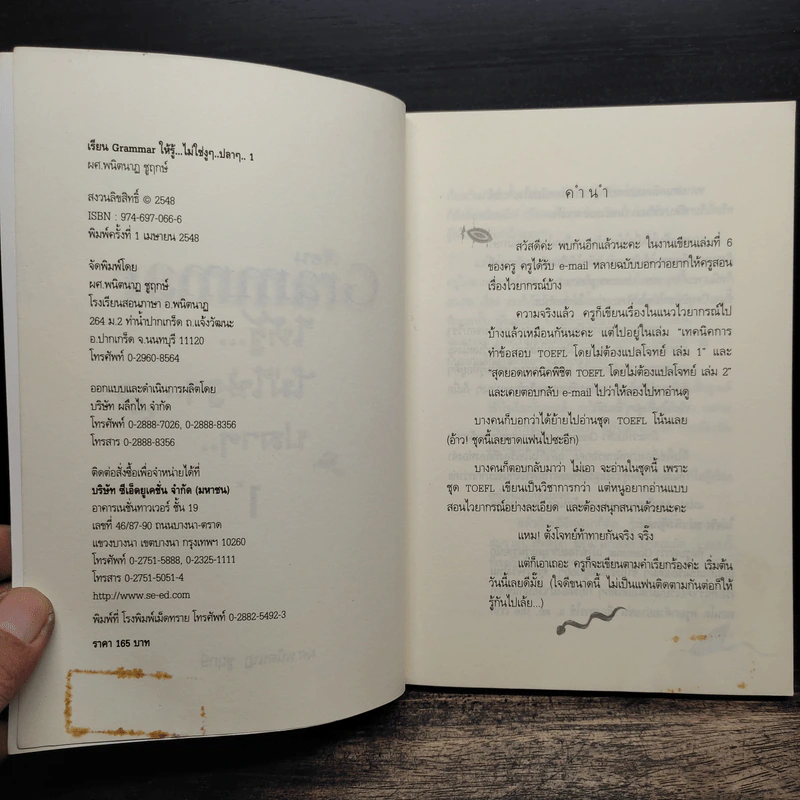 เรียน Grammar ให้รู้...ไม่ใช่งูๆ..ปลาๆ.. 1
ผศ.พนิตนาฏ ชูฤกษ์
สงวนลิขสิทธิ์ © 2548
ISBN : 974-697-066-6
พิมพ์ครั้งที่ 1 เมษายน 2548
จัดพิมพ์โดย
ผศ.พนิตนาฏ ชูฤกษ์
โรงเรียนสอนภาษา อ.พนิตนาฏ
264 ม.2 ท่าน้ำปากเกร็ด ถ.แจ้งวัฒนะ
อ.ปากเกร็ด จ.นนทบุรี 11120
โทรศัพท์ 0-2960-8564
ออกแบบและดำเนินการผลิตโดย
บริษัท ผลึกไท จำกัด
โทรศัพท์ 0-2888-7026, 0-2888-8356
โทรสาร 0-2888-8356
ติดต่อสั่งซื้อเพื่อจำหน่ายได้ที่
บริษัท ซีเอ็ดยูเคชั่น จำกัด (มหาชน)
อาคารเนชั่นทาวเวอร์ ชั้น 19
เลขที่ 46/87-90 ถนนบางนา-ตราด
แขวงบางนา เขตบางนา กรุงเทพฯ 10260
โทรศัพท์ 0-2751-5888, 0-2325-1111
โทรสาร 0-2751-5051-4
http://www.se-ed.com
พิมพ์ที่ โรงพิมพ์เม็ดทราย โทรศัพท์ 0-2882-5492-3
ราคา 165 บาท
คำนำ
สวัสดีค่ะ พบกันอีกแล้วนะคะ ในงานเขียนเล่มที่ 6
ของครู ครูได้รับ e-mail หลายฉบับบอกว่าอยากให้ครูสอน
เรื่องไวยากรณ์บ้าง
ความจริงแล้ว ครูก็เขียนเรื่องในแนวไวยากรณ์ไป
บ้างแล้วเหมือนกันนะคะ แต่ไปอยู่ในเล่ม “เทคนิคการ
ทำข้อสอบ TOEFL โดยไม่ต้องแปลโจทย์ เล่ม 1” และ
“สุดยอดเทคนิคพิชิต TOEFL โดยไม่ต้องแปลโจทย์ เล่ม 2”
และเคยตอบกลับ e-mail ไปว่าให้ลองไปหาอ่านดู
บางคนก็บอกว่าได้ย้ายไปอ่านชุด TOEFL โน้นเลย
(อ้าว! ชุดนี้เลยขาดแฟนไปซะอีก)
บางคนก็ตอบกลับมาว่า ไม่เอา จะอ่านในชุดนี้ เพราะ
ชุด TOEFL เขียนเป็นวิชาการกว่า แต่หนูอยากอ่านแบบ
สอนไวยากรณ์อย่างละเอียด และต้องสนุกสนานด้วยนะคะ
แหม! ตั้งโจทย์ท้าทายกันจริง จริ๊ง
แต่ก็เอาเถอะ ครูก็จะเขียนตามคำเรียกร้องค่ะ เริ่มต้น
วันนี้เลยดีมั๊ย (ใจดีขนาดนี้ ไม่เป็นแฟนติดตามกันต่อก็ให้
รู้กันไปล้อย...)